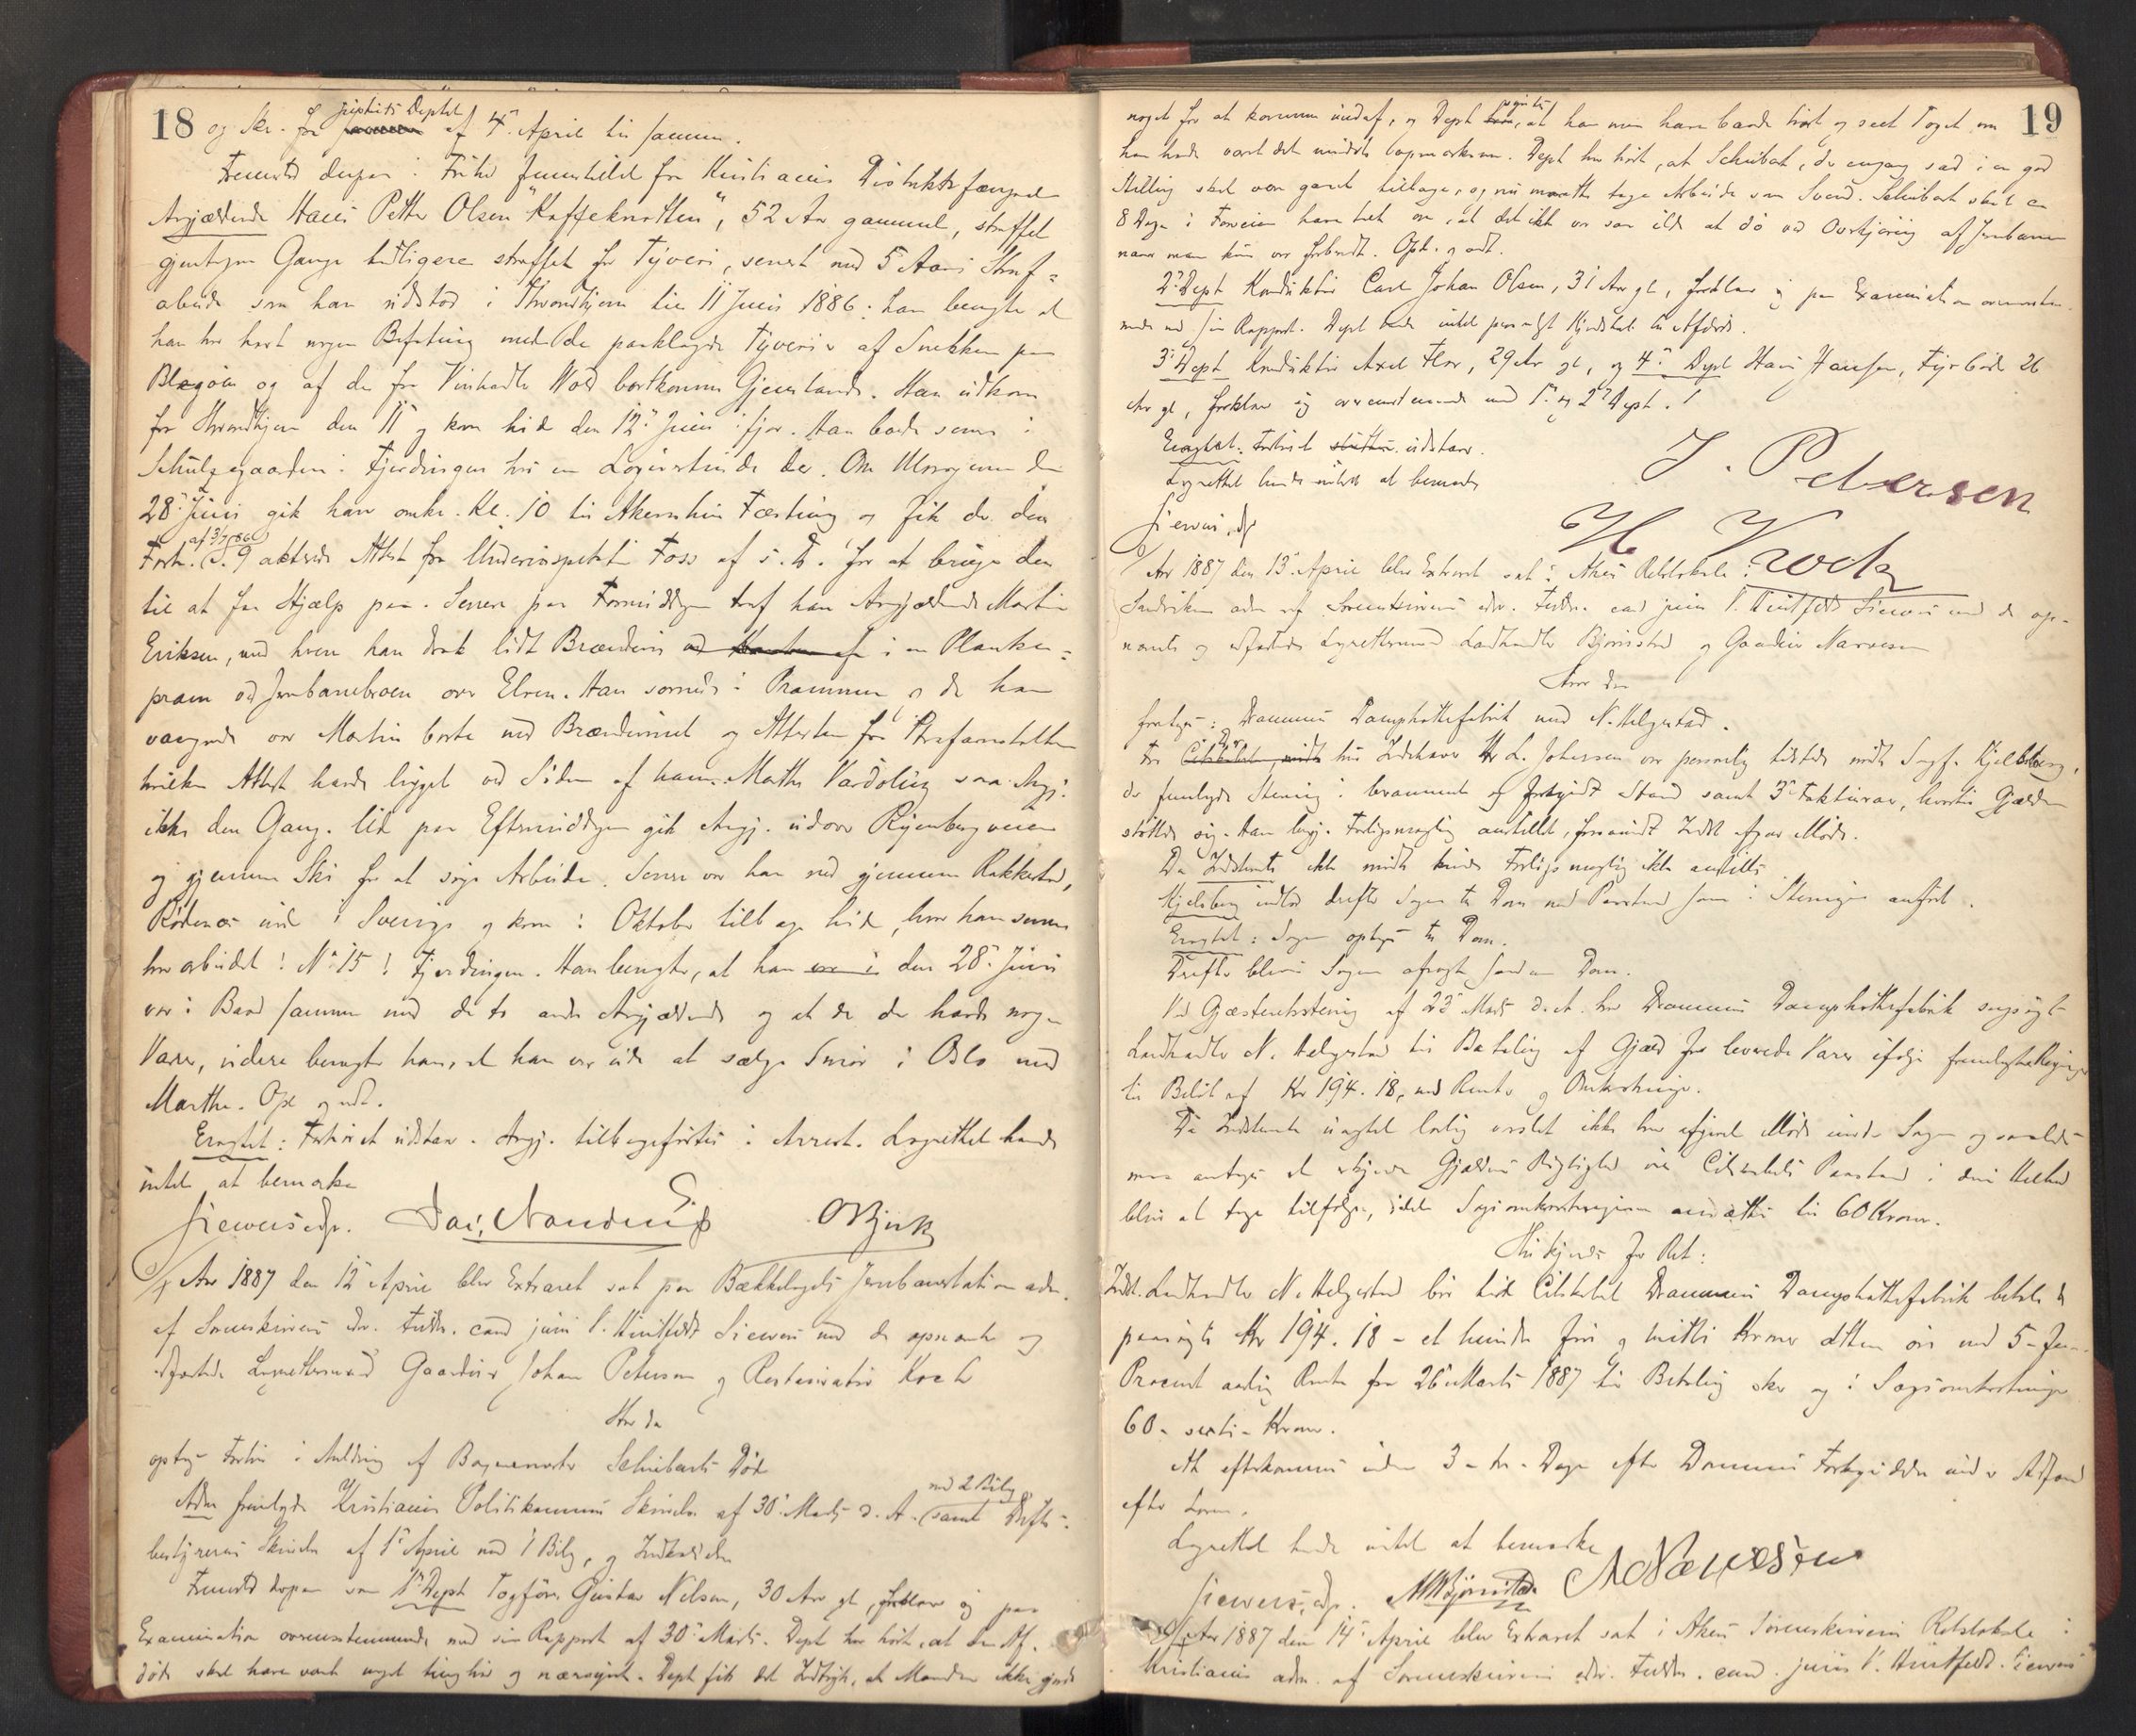 18
og Skr. fra Justits Deptet af 4de April til samme.
Fremstod derpaa i Frihed fremstillet fra Kristiania Distriktsfængsel
Angjældende Hans Petter Olsen "Kaffeknatten", 52 Aar gammel, straffet
gjentagne Gange tidligere straffet for Tyveri, senest med 5 Aars Straf=
arbeide som han udstod i Throndhjem til 11 Juni 1886; han benegter at
han har havt nogen Befatning med de paaklagede Tyverier af Snekken paa
Blegøen og af de fra Vinhandler Wold bortkomne Gjenstande. Han udkom
fra Throndhjem den 11 og kom hid den 12te Juni ifjor. Han boede senere i
Schulzegaarden i Fjerdingen hos en Logivertinde der. Om Morgenen den
28de Juni gik han omkr. Kl. 10 til Akershus Fæstning og fik der den
af 3/7 86
Forh. S. 9 omhandlede Attest fra Underinspektør Foss af s. D. for at bruge den
til at faa Hjælp paa. Senere paa Formiddagen traf han Angjældende Martin
Eriksen, med hvem han drak lidt Brændevin i en Planke=
pram ved Jernbanebroen over Elven. Han sovnede i Prammen og da han
vaagnede var Martin borte med Brændevinet og Attesten fra Strafanstalten
hvilken Attest havde ligget ved Siden af ham. Marthe Vardøling saa Angj.
ikke den Gang. Ud paa Eftermiddagen gik Angj. udover Ryenbergveien
og gjennem Ski for at søge Arbeide. Senere var han ned gjennem Rakkestad,
Rødenæs ind i Sverige og kom i Oktober tilbage hid, hvor han senere
har arbeidet i No 15 i Fjerdingen. Han benegter, at han den 28de Juni
var i Baad sammen med de to andre Angjældende og at de da havde nogen
Varer, videre benegter han, at han var ude at sælge Smør i Oslo med
Marthe. Opl. og vedt.
Eragtet: Forhøret udstaar. Angj. tilbageførtes i Arrest. Lagrettet havde
intet at bemærke
Siewers edsv.
O Bjerk
Aar 1887 den 12te April blev Extraret sat paa Bækkelagets Jernbanestation adm.
af Sorenskriverens edsv. Fuldm. cand juris V. Huitfeldt Siewers med de opnævnte og
edfæstede Lagrettesmænd Gaardeier Johan Petersen og Restauratør Koch
Hvor da
optoges Forhør i Anledning af Bogmester Schubarts Død
Adm fremlagde Kristiania Politikammers Skrivelse af 30te Marts d. A. (med 2 Bilag) samt Drifts=
bestyrerens Skrivelse af 1ste April med 1 Bilag, og Indkaldelse
Fremstod derpaa som 1ste Dept Togfører Gustav Nilsen, 30 Aar gl, forklarer sig paa
Examination overensstemmende med sin Rapport af 30te Marts. Dept har hørt, at den Af=
døde skal have været noget tunghør og nærsynet. Dept fik det Indtryk, at Manden ikke gjorde
19
noget for at komme undaf, og Dept synes, at han maa have baade hørt og seet Toget, om
han havde været det mindste opmærksom. Dept har hørt, at Schubart, der engang sad i en god
Stilling skal være gaaet tilbage, og nu maatte tage Arbeide som Svend. Schubart skal en
8 Dage i Forveien have talt om, at det ikke var saa ilde at dø ved Overkjøring af Jernbanen
naar man kun var forberedt. Opl. og vedt.
2den Dept Konduktør Carl Johan Olsen, 31 Aar gl, forklarer sig paa Examination overensstem=
mende med sin Rapport. Dept havde intet personligt Kjendskab til Afdøde.
3die Dept Konduktør Axel Flor, 29 Aar gl, og 4de Dept Hans Hansen, Fyrbøder 26
Aar gl, forklarer sig overensstemmende med 1ste og 2den Dept.
Eragtet: Forhøret udstaar.
Lagrettet havde intet at bemærke
J. Petersen
Siewers, edsv
H Koch
Aar 1887 den 13de April blev Extraret sat i Akers Retslokale i
adm. af Sorenskriverens edsv. Fuldm. cand juris V. Huitfeldt Siewers med de op=
nævnte og edfæstede Lagrettesmænd Landhandler Bjørnstad og Gaardeier Narvesen
Hvor da
foretoges: Drammens Damphattefabrik mod N. Helgestad.
For hos Indehaver Hr L. Johansen var personlig tilstede mødte Sagf. Kjelsberg,
der fremlagde Stevning i beramment og forkyndt Stand samt 3de Fakturaer, hvortil Gjælden
støttede sig. Han begj. Forligsmægling anstillet, forsaavidt Indst afgav Møde.
Da Indstevnte ikke mødte kunde Forligsmægling ikke anstilles
Kjelsberg indlod derefter Sagen til Dom med Paastand som i Stevningen anført.
Eragtet: Sagen optages til Dom.
Derefter blev i Sagen afsagt saadan Dom.
Ved Gjæsteretsstevning af 23de Marts d. A. har Drammens Damphattefabrik sagsøgt
Landhandler N. Helgestad til Betaling af Gjæld for leverede Varer ifølge fremlagte Regninger
til Beløb af Kr 194.18, med Renter og Omkostninger.
Da Indstevnte uagtet lovlig varslet ikke har afgivet Møde under Sagen og saaledes
maa antages at erkjende Gjældens Rigtighed vil Citantskabets Paastand i dens Helhed
blive at tage tilfølge, idet Sagsomkostningerne ansættes til 60 Kroner.
Thi kjendes for Ret:
Indst. Landhandler N. Helgestad bør til Citantskabet Drammens Damphattefabrik betale de
paasøgte Kr 194.18 - et hundrede fire og nitti Kroner atten øre med 5 - fem -
Procent aarlig Rente fra 26de Marts 1887 til Betaling sker og i Sagsomkostninger
60 - sexti - Kroner.
At efterkommes inden 3 - tre - Dage efter Dommens Forkyndelse under Adfærd
efter Loven.
Lagrettet havde intet at bemærke
Siewers, edsv. MBjørnstad ANarvesen
Aar 1887 den 14de April blev Extraret sat i Akers Sorenskriveris Retslokale i
Kristiania adm. af Sorenskriverens edsv. Fuldm. cand. juris V. Huitfeldt. Siewers